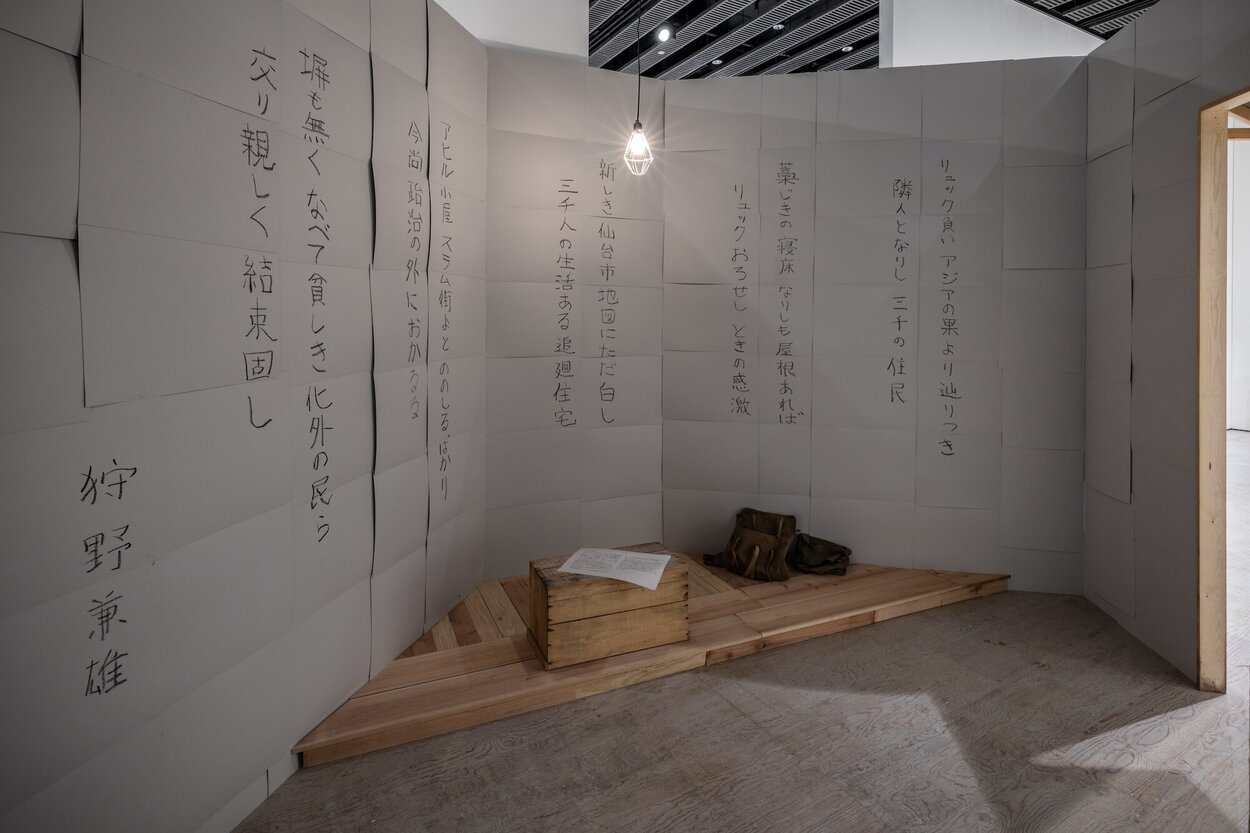 リュック負い アジアの果より辿りつき
隣人となりし 三千の住民
藁じきの寝床なりしも屋根あれば
リュックおろせし ときの感激
新しき仙台市地図にただ白し
三千人の生活ある追廻住宅
アヒル小屋 スラム街よと ののしるばかり
今尚政治の外におかるる
塀も無くなべて貧しき化外の民ら
交り親しく結束固し
狩野兼雄